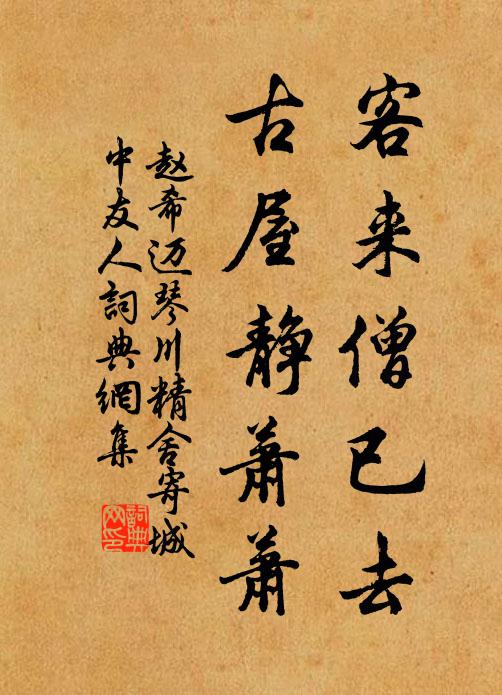 客来僧已去
古屋静萧萧
赵希迈琴川精舍寄城
中友人詞典網集
詞典
网印